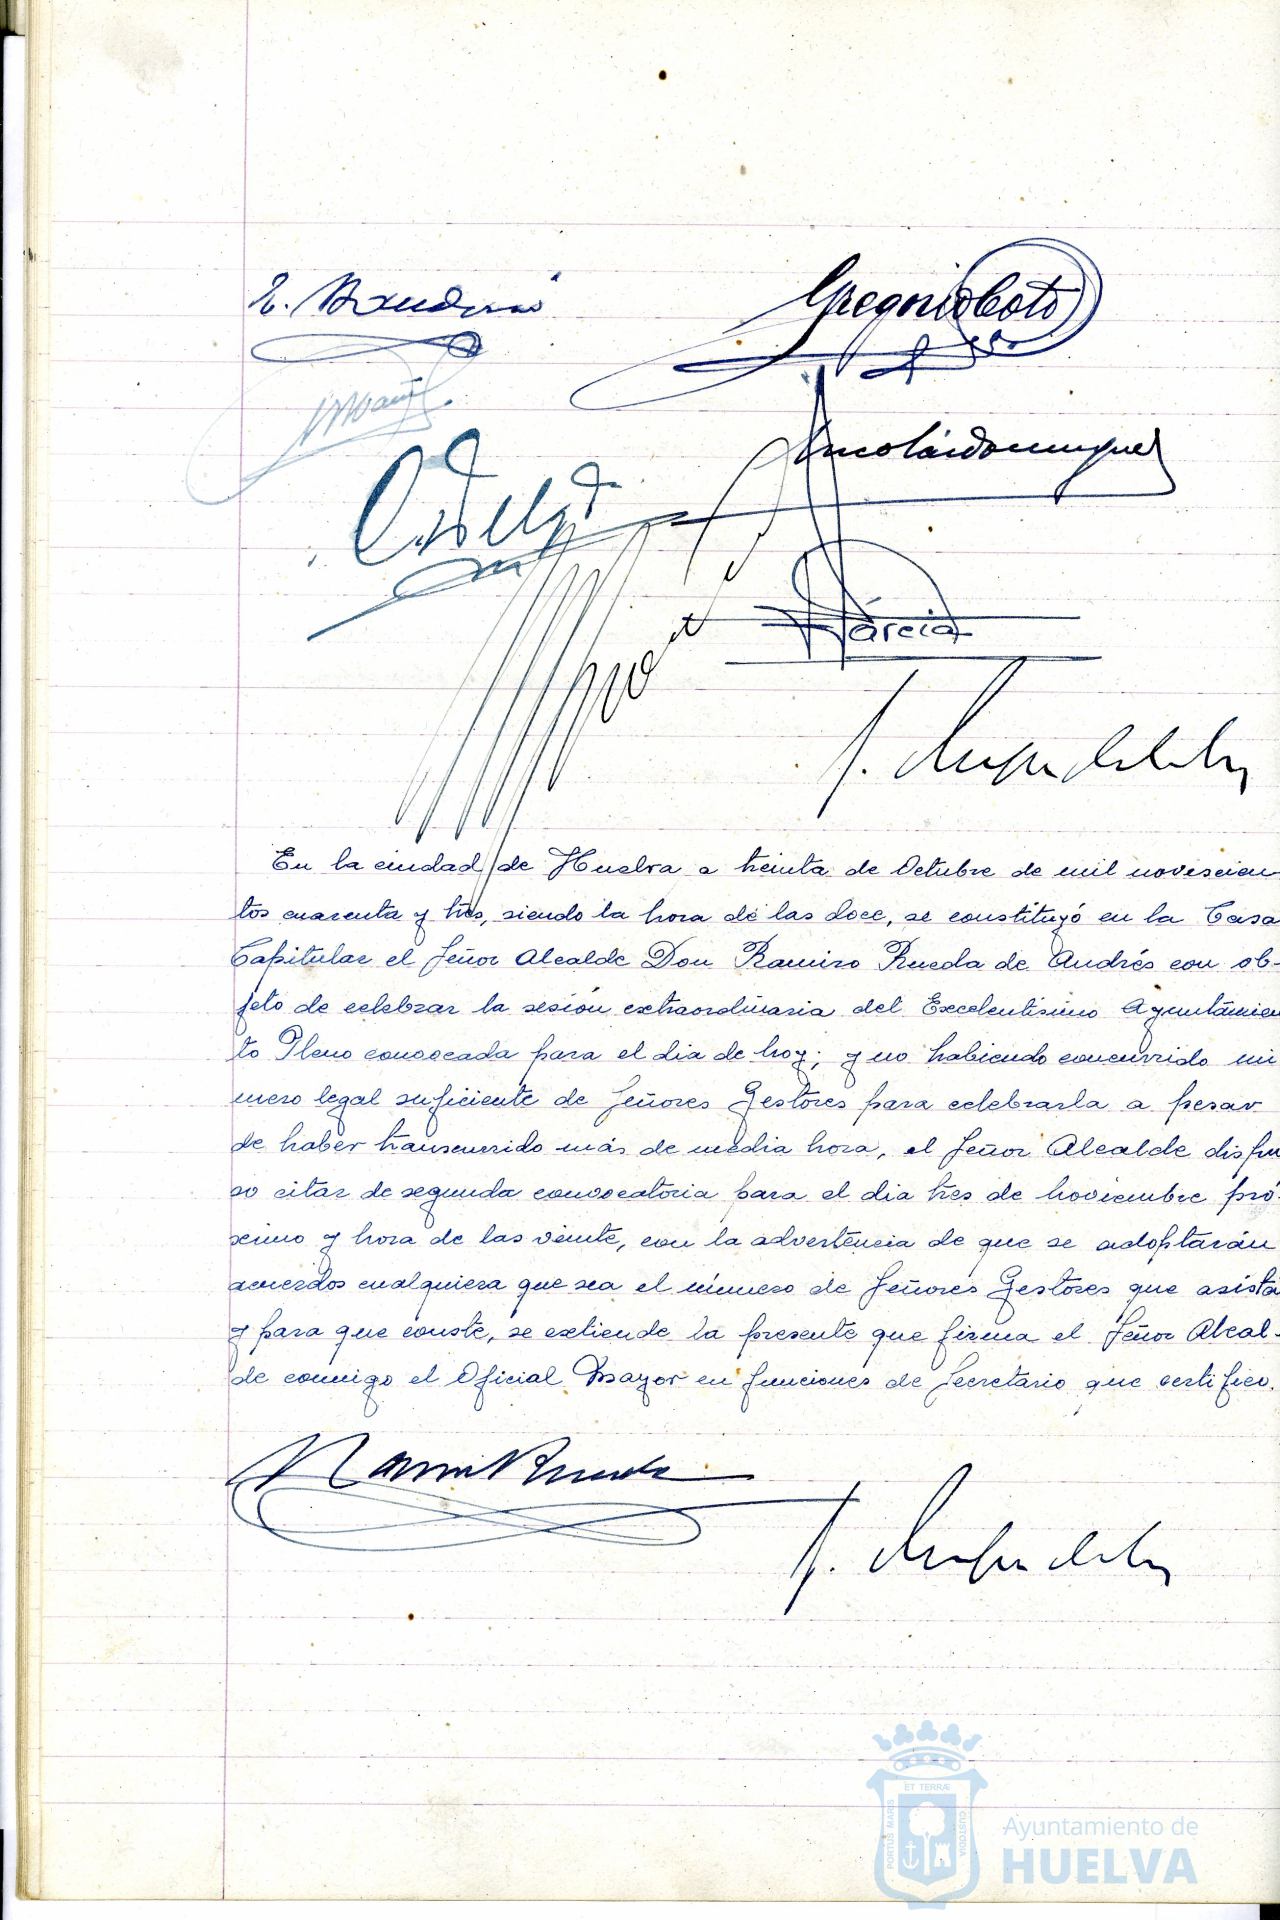 Gregorio Coto
Nicolás Dominguez
García
En la ciudad de Huelva a treinta de Octubre de mil novescien-
tos cuarenta y tres, siendo la hora de las doce, se constituyó en la Casa
Capitular el Señor Alcalde Don Ramiro Rueda de Andrés con ob-
jeto de celebrar la sesión extraordinaria del Excelentísimo Ayuntamien
to Pleno convocada para el dia de hoy; y no habiendo concurrido nú
mero legal suficiente de Señores Gestores para celebrarla a pesar
de haber transcurrido más de media hora, el Señor Alcalde dispu
so citar de segunda convocatoria para el dia tres de noviembre pró-
ximo y hora de las veinte, con la advertencia de que se adoptarán
acuerdos cualquiera que sea el número de Señores Gestores que asista
y para que conste, se extiende la presente que firma el Señor Alcal-
de conmigo el Oficial Mayor en funciones de Secretario que certifico.
Ramiro Rueda
ET TERRÆ
PORTUS MARIS
CUSTODIA
Ayuntamiento de
HUELVA